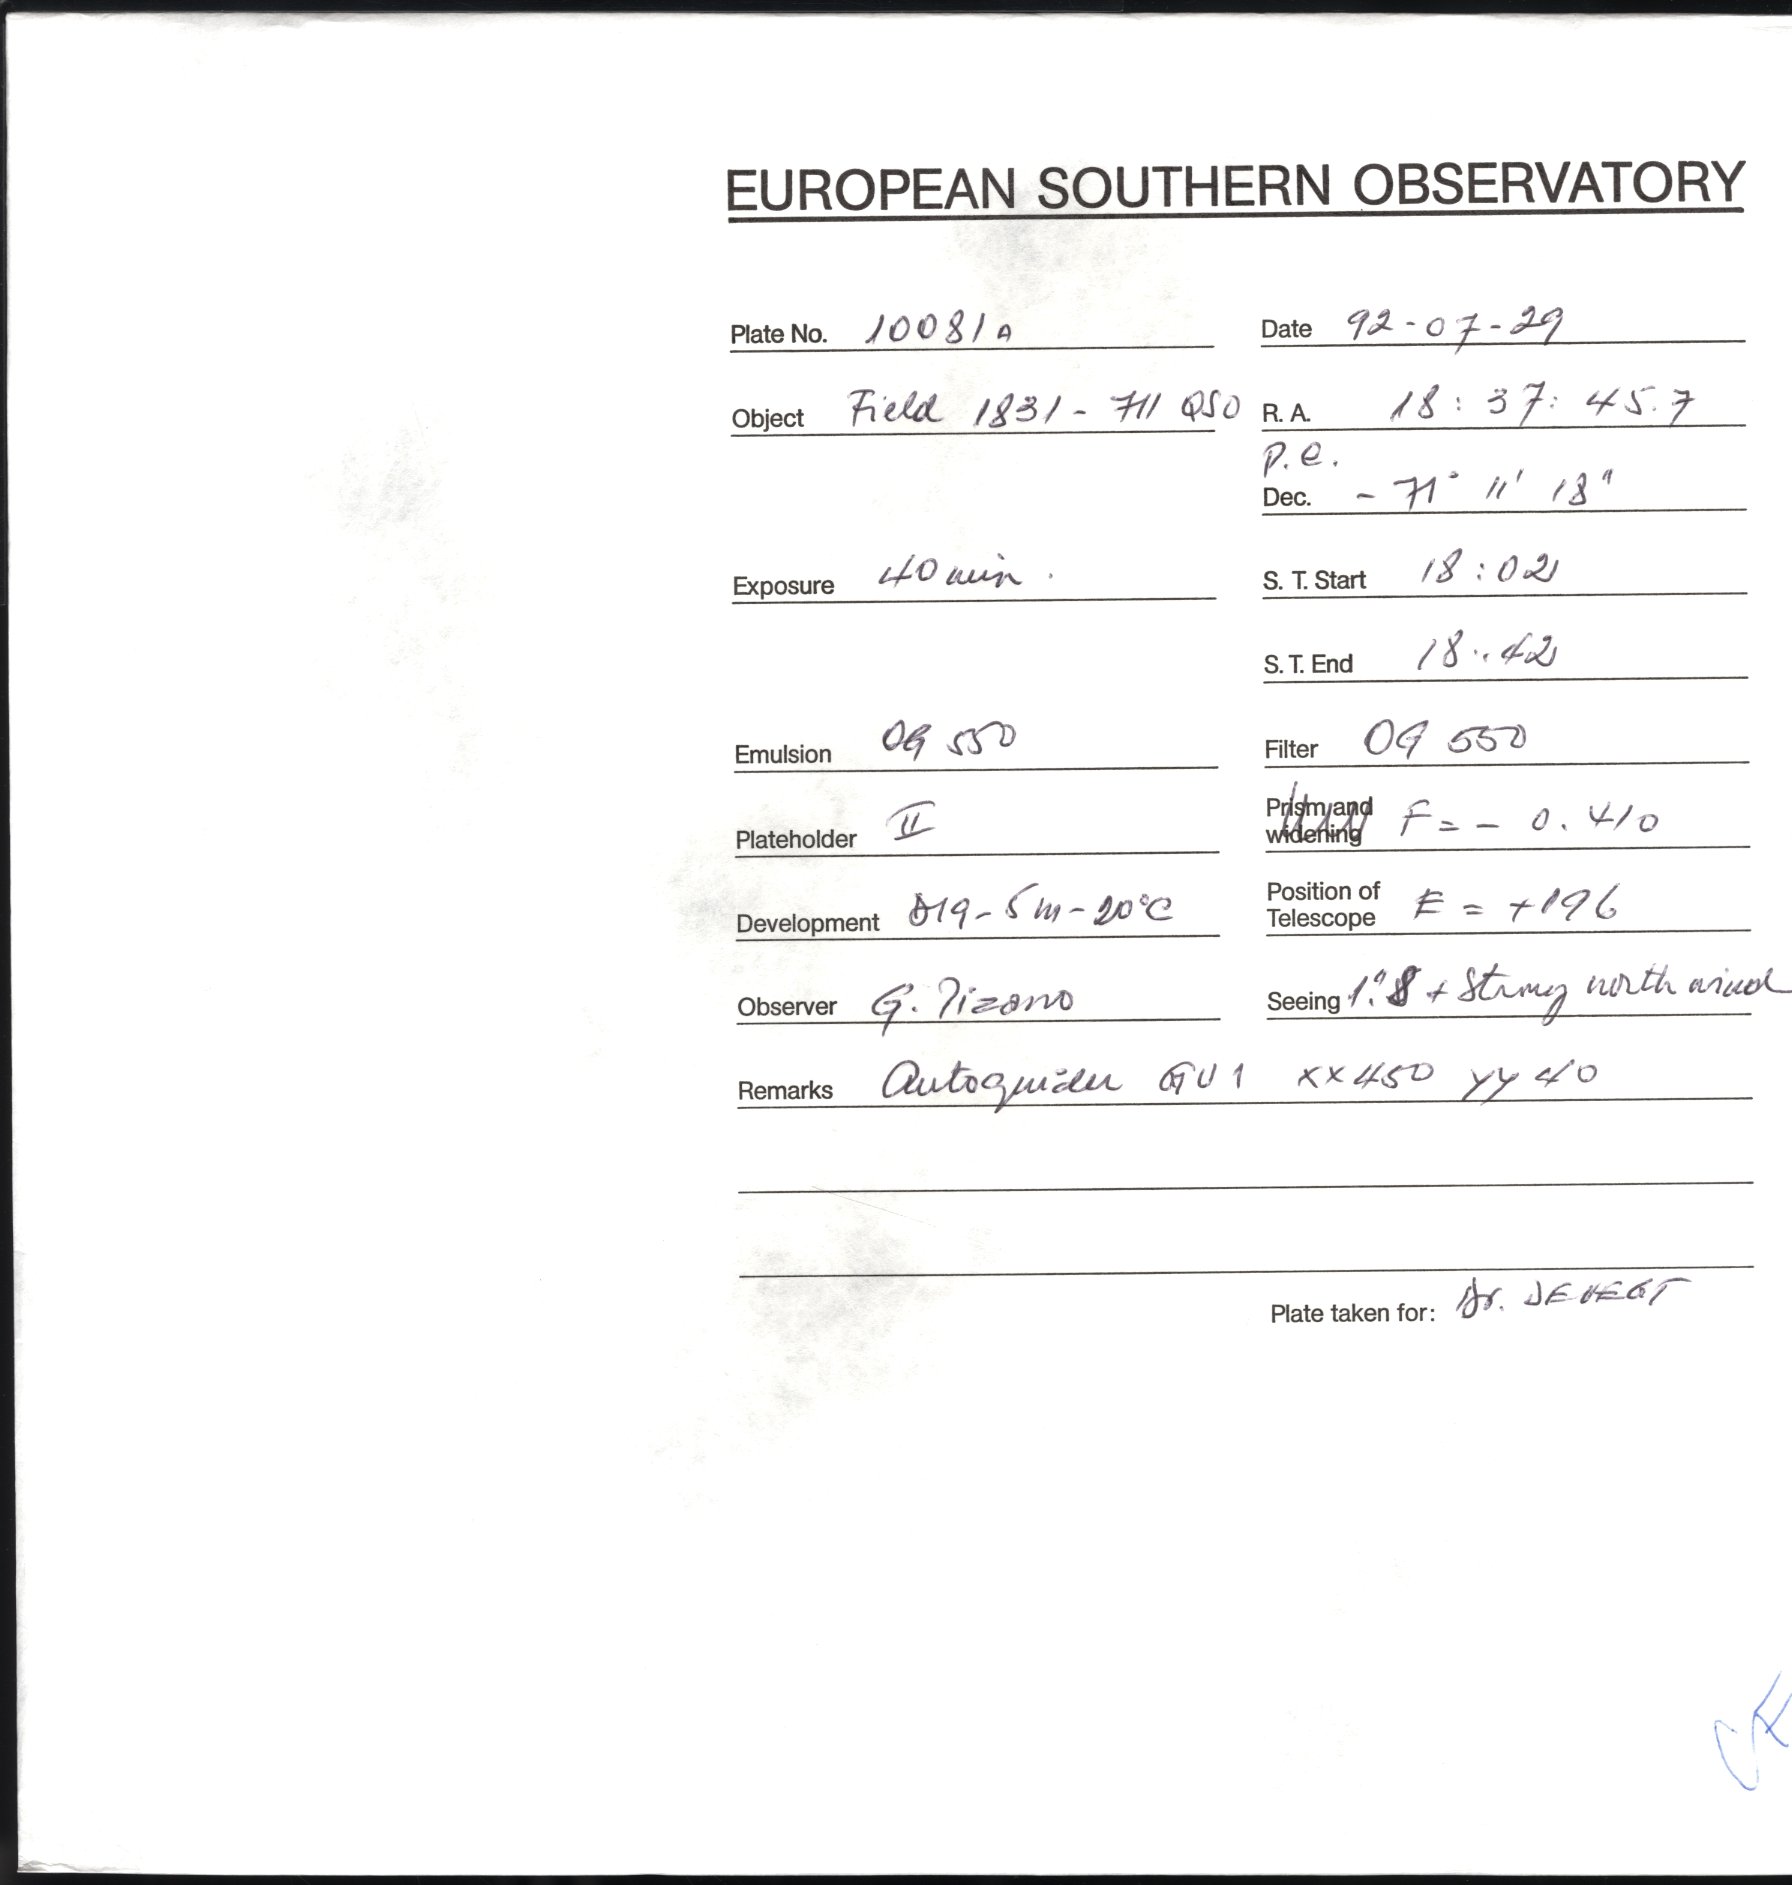 EUROPEAN SOUTHERN OBSERVATORY
Plate No. 10081A Date 92-07-29
Object Field 1831-711 QSO R. A. 18 : 37 : 45.7
p.e.
Dec. - 71° 11' 18"
Exposure 40 min. S. T. Start 18 : 02
S. T. End 18 : 42
Emulsion OG 550 Filter OG 550
Plateholder II Prism and widening F = - 0.410
Development D19 - 5m - 20°C Position of Telescope E = +196
Observer G. Pizarro Seeing 1".8 + Strong north wind
Remarks Autoguider GU1 xx450 yy40
Plate taken for: Dr. DEVEGT